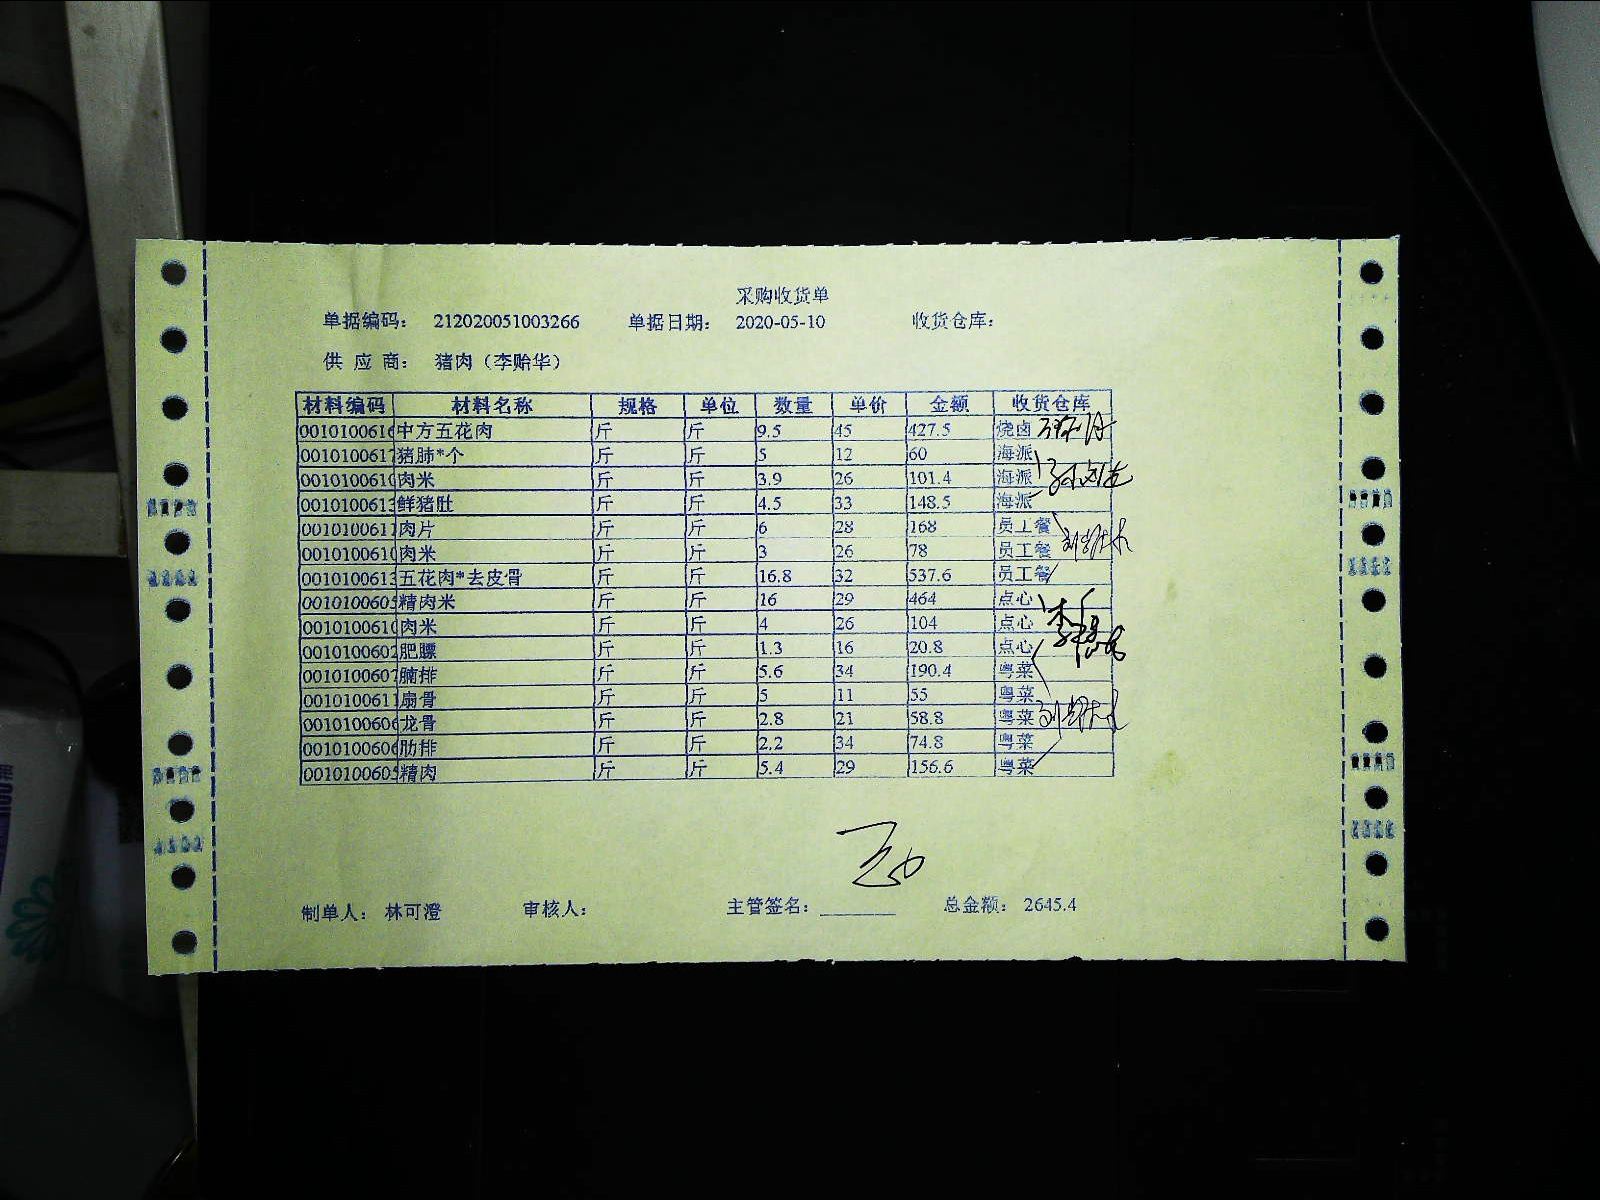 采购收货单
单据编码： 212020051003266 单据日期： 2020-05-10 收货仓库：
供 应 商： 猪肉（李贻华）
材料编码 材料名称 规格 单位 数量 单价 金额 收货仓库
0010100616 中方五花肉 斤 斤 9.5 45 427.5 烧卤
0010100617 猪肺*个 斤 斤 5 12 60 海派
0010100610 肉米 斤 斤 3.9 26 101.4 海派
0010100613 鲜猪肚 斤 斤 4.5 33 148.5 海派
0010100611 肉片 斤 斤 6 28 168 员工餐
0010100610 肉米 斤 斤 3 26 78 员工餐
0010100613 五花肉*去皮骨 斤 斤 16.8 32 537.6 员工餐
0010100605 精肉米 斤 斤 16 29 464 点心
0010100610 肉米 斤 斤 4 26 104 点心
0010100602 肥膘 斤 斤 1.3 16 20.8 点心
0010100607 腩排 斤 斤 5.6 34 190.4 粤菜
0010100611 扇骨 斤 斤 5 11 55 粤菜
0010100606 龙骨 斤 斤 2.8 21 58.8 粤菜
0010100606 肋排 斤 斤 2.2 34 74.8 粤菜
0010100605 精肉 斤 斤 5.4 29 156.6 粤菜
制单人： 林可澄 审核人： 主管签名： 总金额： 2645.4